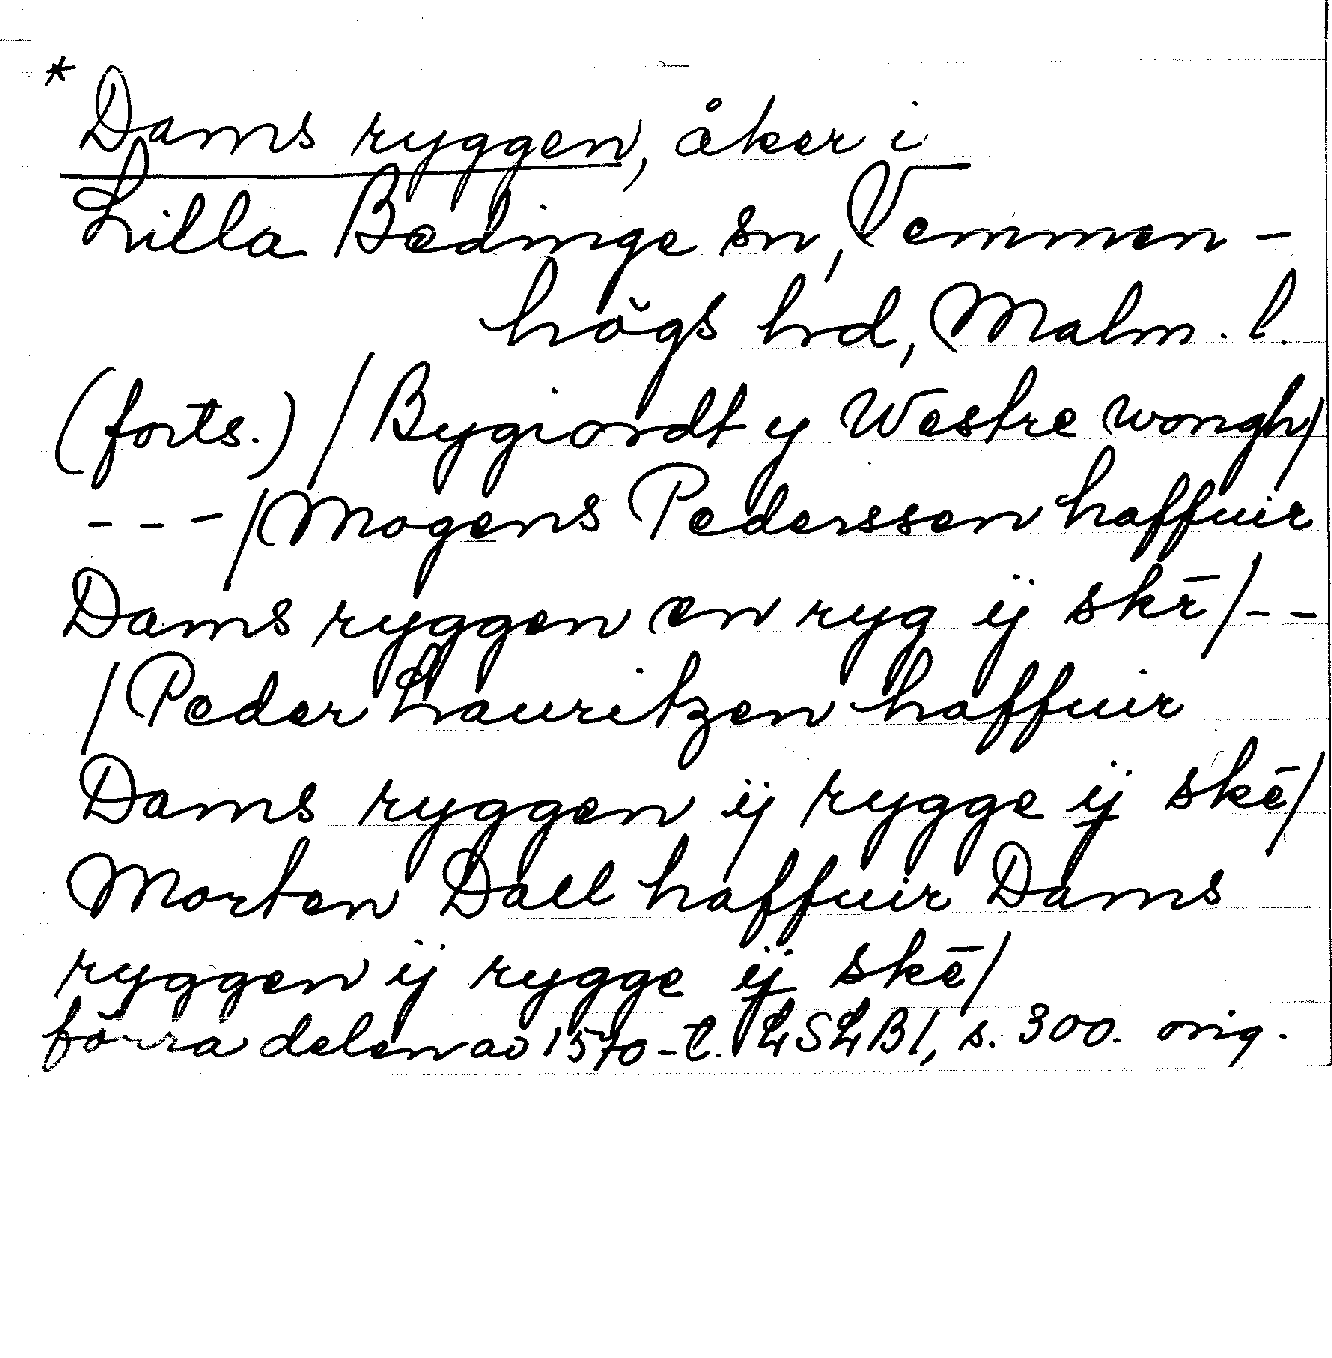 * Dams ryggen, åker i
Lilla Bedinge sn, Vemmen-
högs hrd, Malm. l.
(forts.) / Bygiordt y Westre wongh/
---/Mogens Pederssen haffuir
Dams ryggen en ryg ÿ skē/--
/Peder Lauritzen haffuir
Dams ryggen ÿ rygge ÿ skē/
Morten Dall haffuir Dams
ryggen ÿ rygge ÿ skē/
förra delen av 1570-t. LSLB1, s. 300. orig.